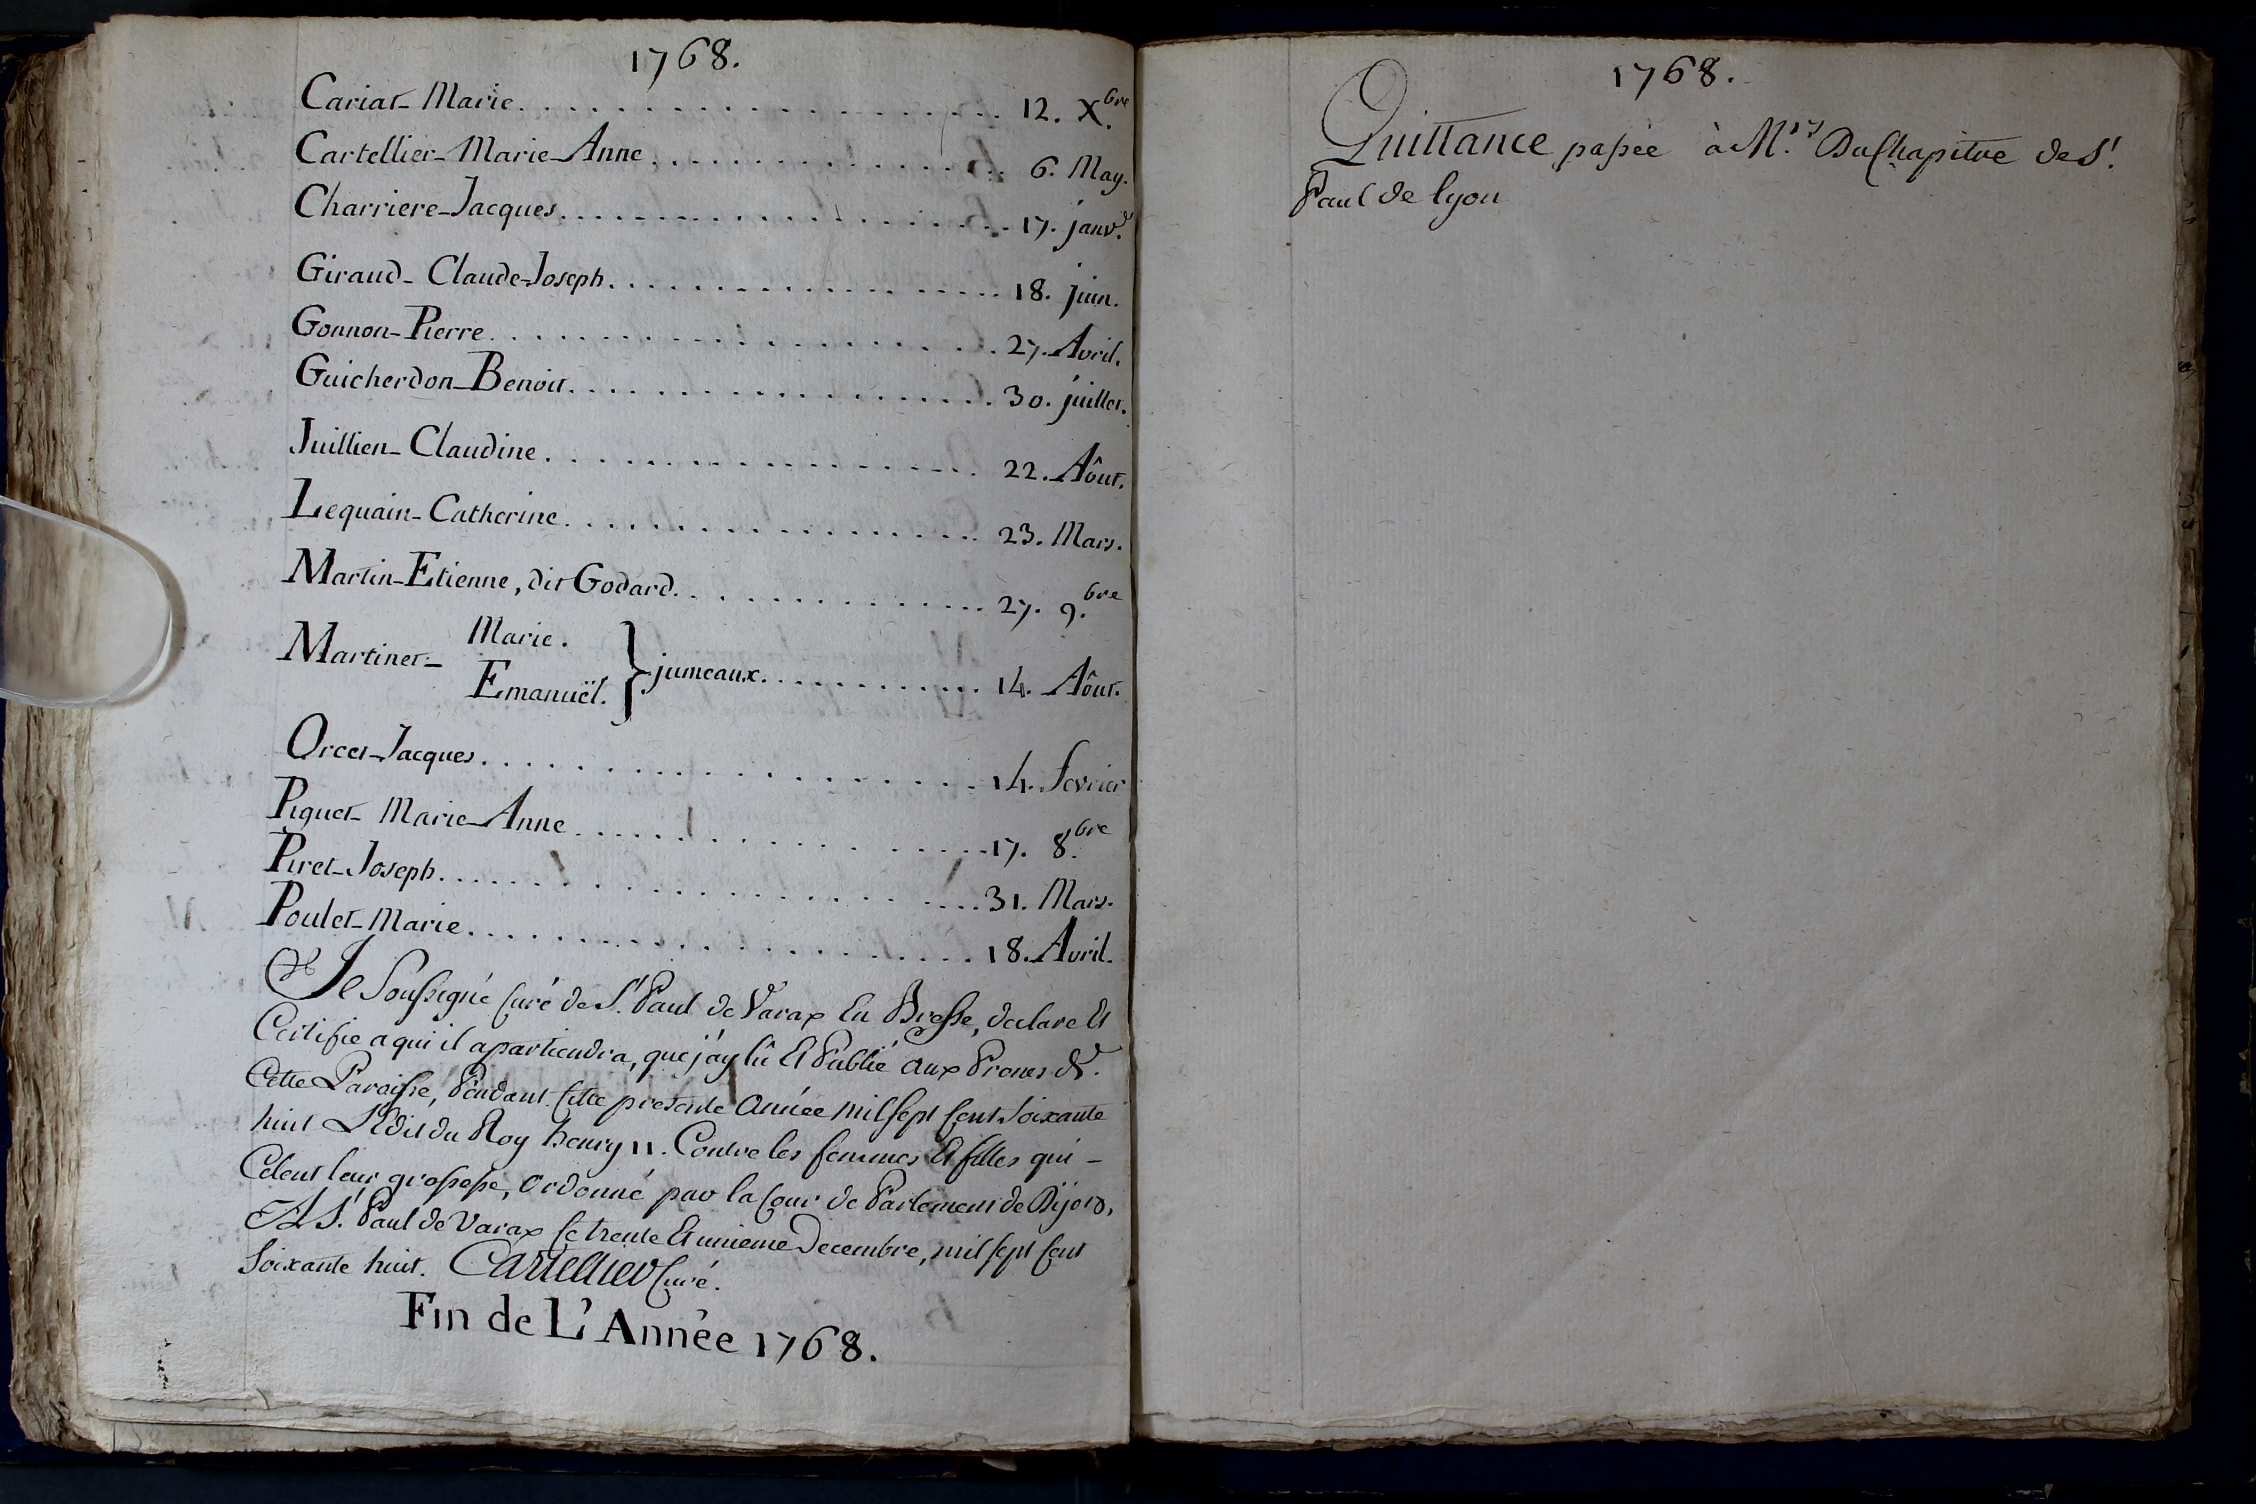 1768.
Cariat - Marie. . . . . . . . . . . . . . . . . . . 12. Xbre.
Cartellier - Marie - Anne. . . . . . . . . . . . . . 6. May.
Charriere - Jacques. . . . . . . . . . . . . . . . . 17. janvr.
Giraud - Claude - Joseph. . . . . . . . . . . . . . . 18. juin.
Gonnon - Pierre. . . . . . . . . . . . . . . . . . . 27. Avril.
Guicherdon - Benoit. . . . . . . . . . . . . . . . . 30. juillet.
Juillien - Claudine. . . . . . . . . . . . . . . . . 22. Aôut.
Lequain - Catherine. . . . . . . . . . . . . . . . . 23. Mars.
Martin - Etienne, dit Godard. . . . . . . . . . . . . 27. 9.bre
Martinet - Marie.
Emanuël. } jumeaux. . . . . . . . . . . . 14. Aôut.
Orcet - Jacques. . . . . . . . . . . . . . . . . . . 14. fevrier
Piquet - Marie - Anne. . . . . . . . . . . . . . . . 17. 8.bre
Piret - Joseph. . . . . . . . . . . . . . . . . . . . 31. Mars.
Poulet - Marie. . . . . . . . . . . . . . . . . . . . 18. Avril.
Je Soussigné Curé de St. Paul de Varax En Bresse, declare Et
Certifie a qui il apartiendra, que j'ay lû Et Publié aux Prones de
Cette Paroisse, Pendant Cette presente Année mil sept Cent Soixante
huit L'Edit du Roy henry II. Contre les femmes Et filles qui -
Celent leur grossesse, ordonné par la Cour de Parlement de Dijon,
A St. Paul de Varax Ce trente Et unieme Decembre, mil sept Cent
Soixante huit. Cartellier Curé.
Fin de L'Année 1768.
1768.
Quittance passée à M.rs Du Chapitre de St.
Paul de lyon